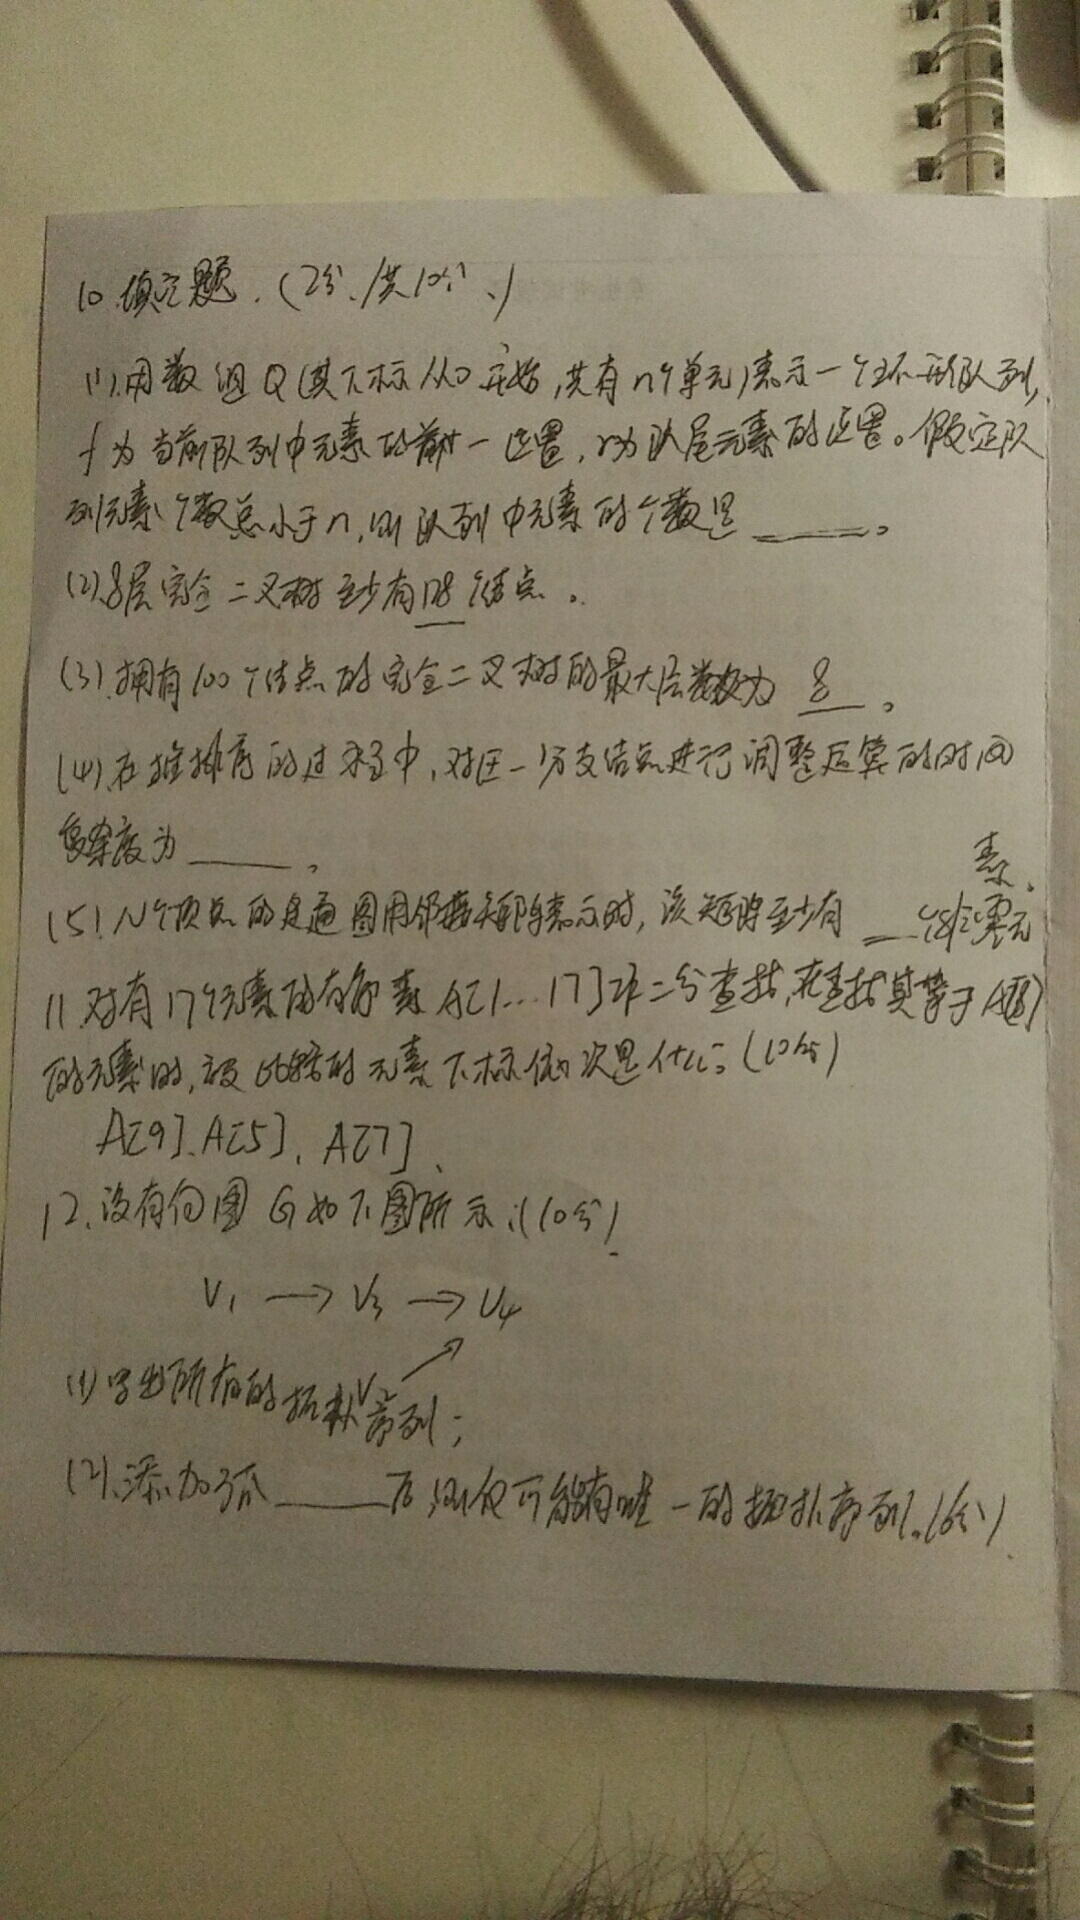 10.填空题.(2分、/共10分、)
(1).用数组Q(其下标从0开始,共有n个单元)表示一个环形队列,
f为当前队列中元素的前一位置,r为队尾元素的位置。假定队
列元素个数总小于n,则队列中元素的个数是____。
(2).8层完全二叉树至少有128个结点。
(3).拥有100个结点的完全二叉树的最大层数为 8 。
(4).在堆排序的过程中,对任一分支结点进行调整运算的时间
复杂度为____。
(5).N个顶点的连通图用邻接矩阵表示时,该矩阵至少有__个非零元
素.
11.对有17个元素的有序表A[1...17]作二分查找,在查找其等于A[8]
的元素时,被比较的元素下标依次是什么?(10分)
A[9].A[5].A[7].
12.设有向图G如下图所示:(10分)
V1 → V3 → V4
V2 ↗
(1)写出所有的拓扑序列;
(2).添加弧____后,则仅可能有唯一的拓扑序列.(6分)